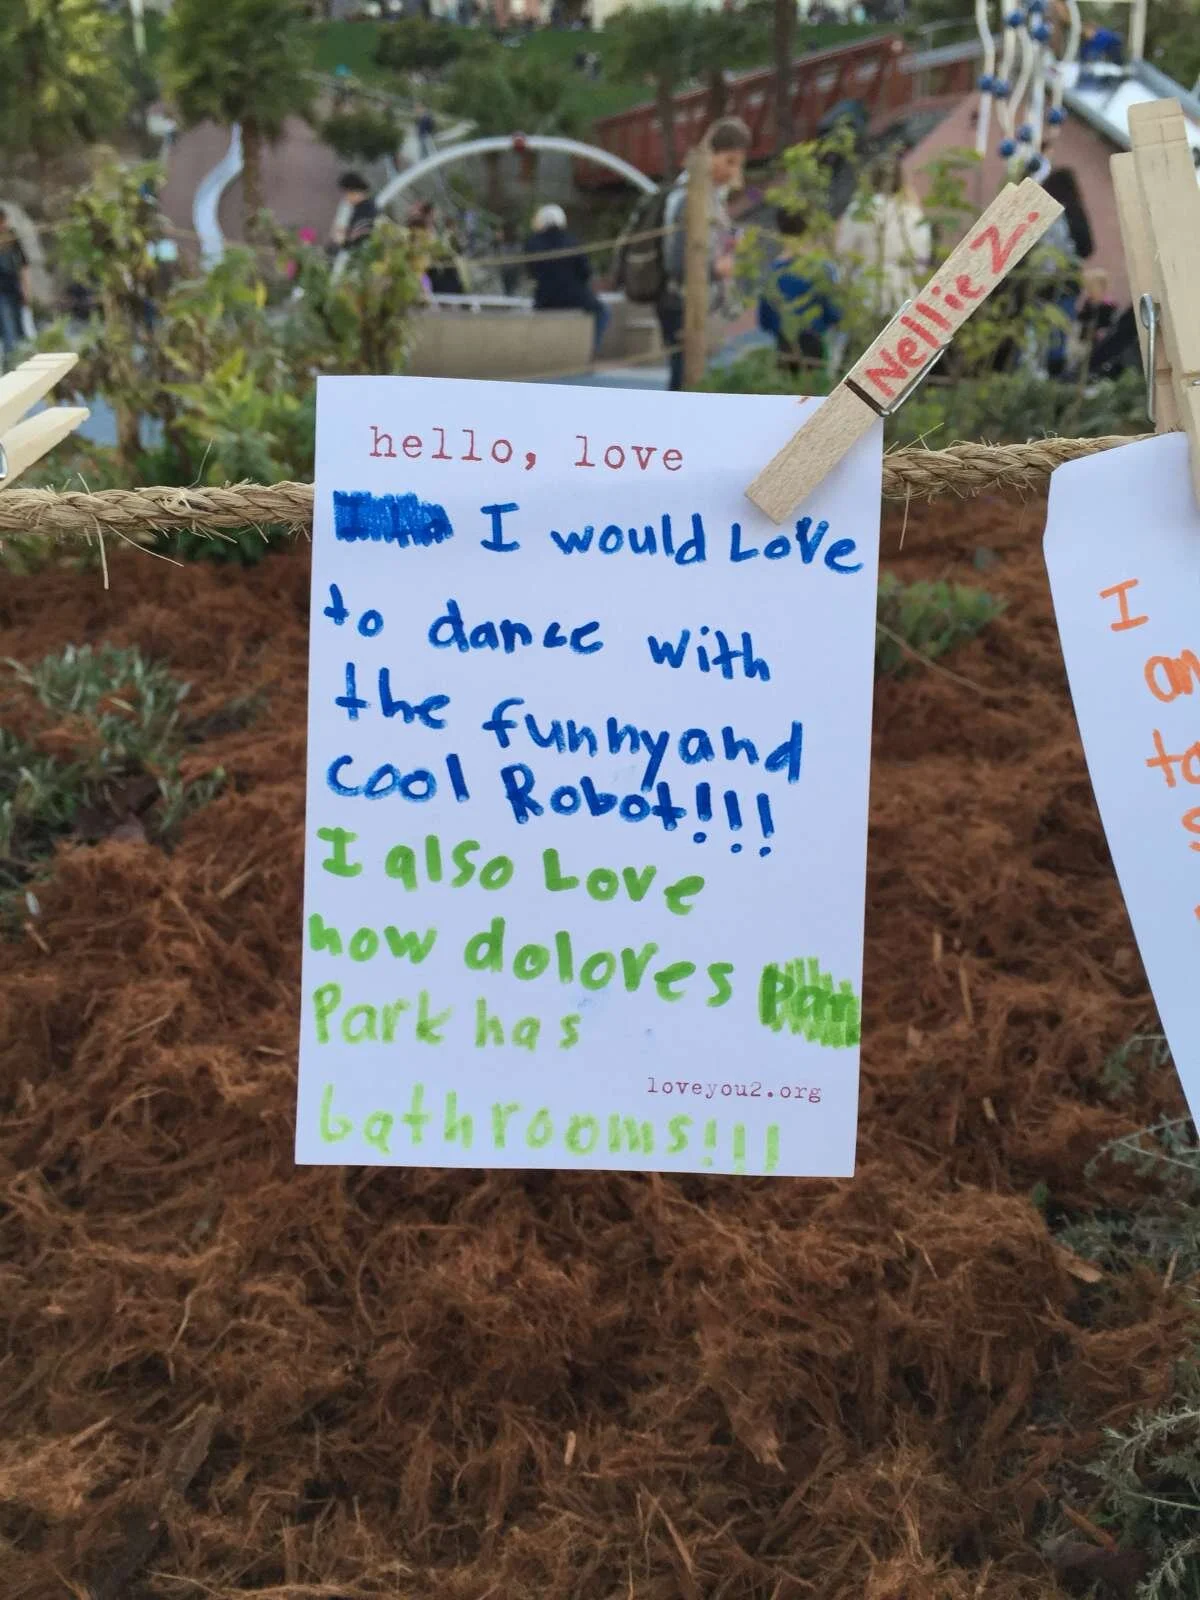 Nellie Z.
hello, love
I would Love
to dance with
the funny and
cool Robot!!!
I also Love
how dolores
Park has
loveyou2.org
bathrooms!!!
I
an
to